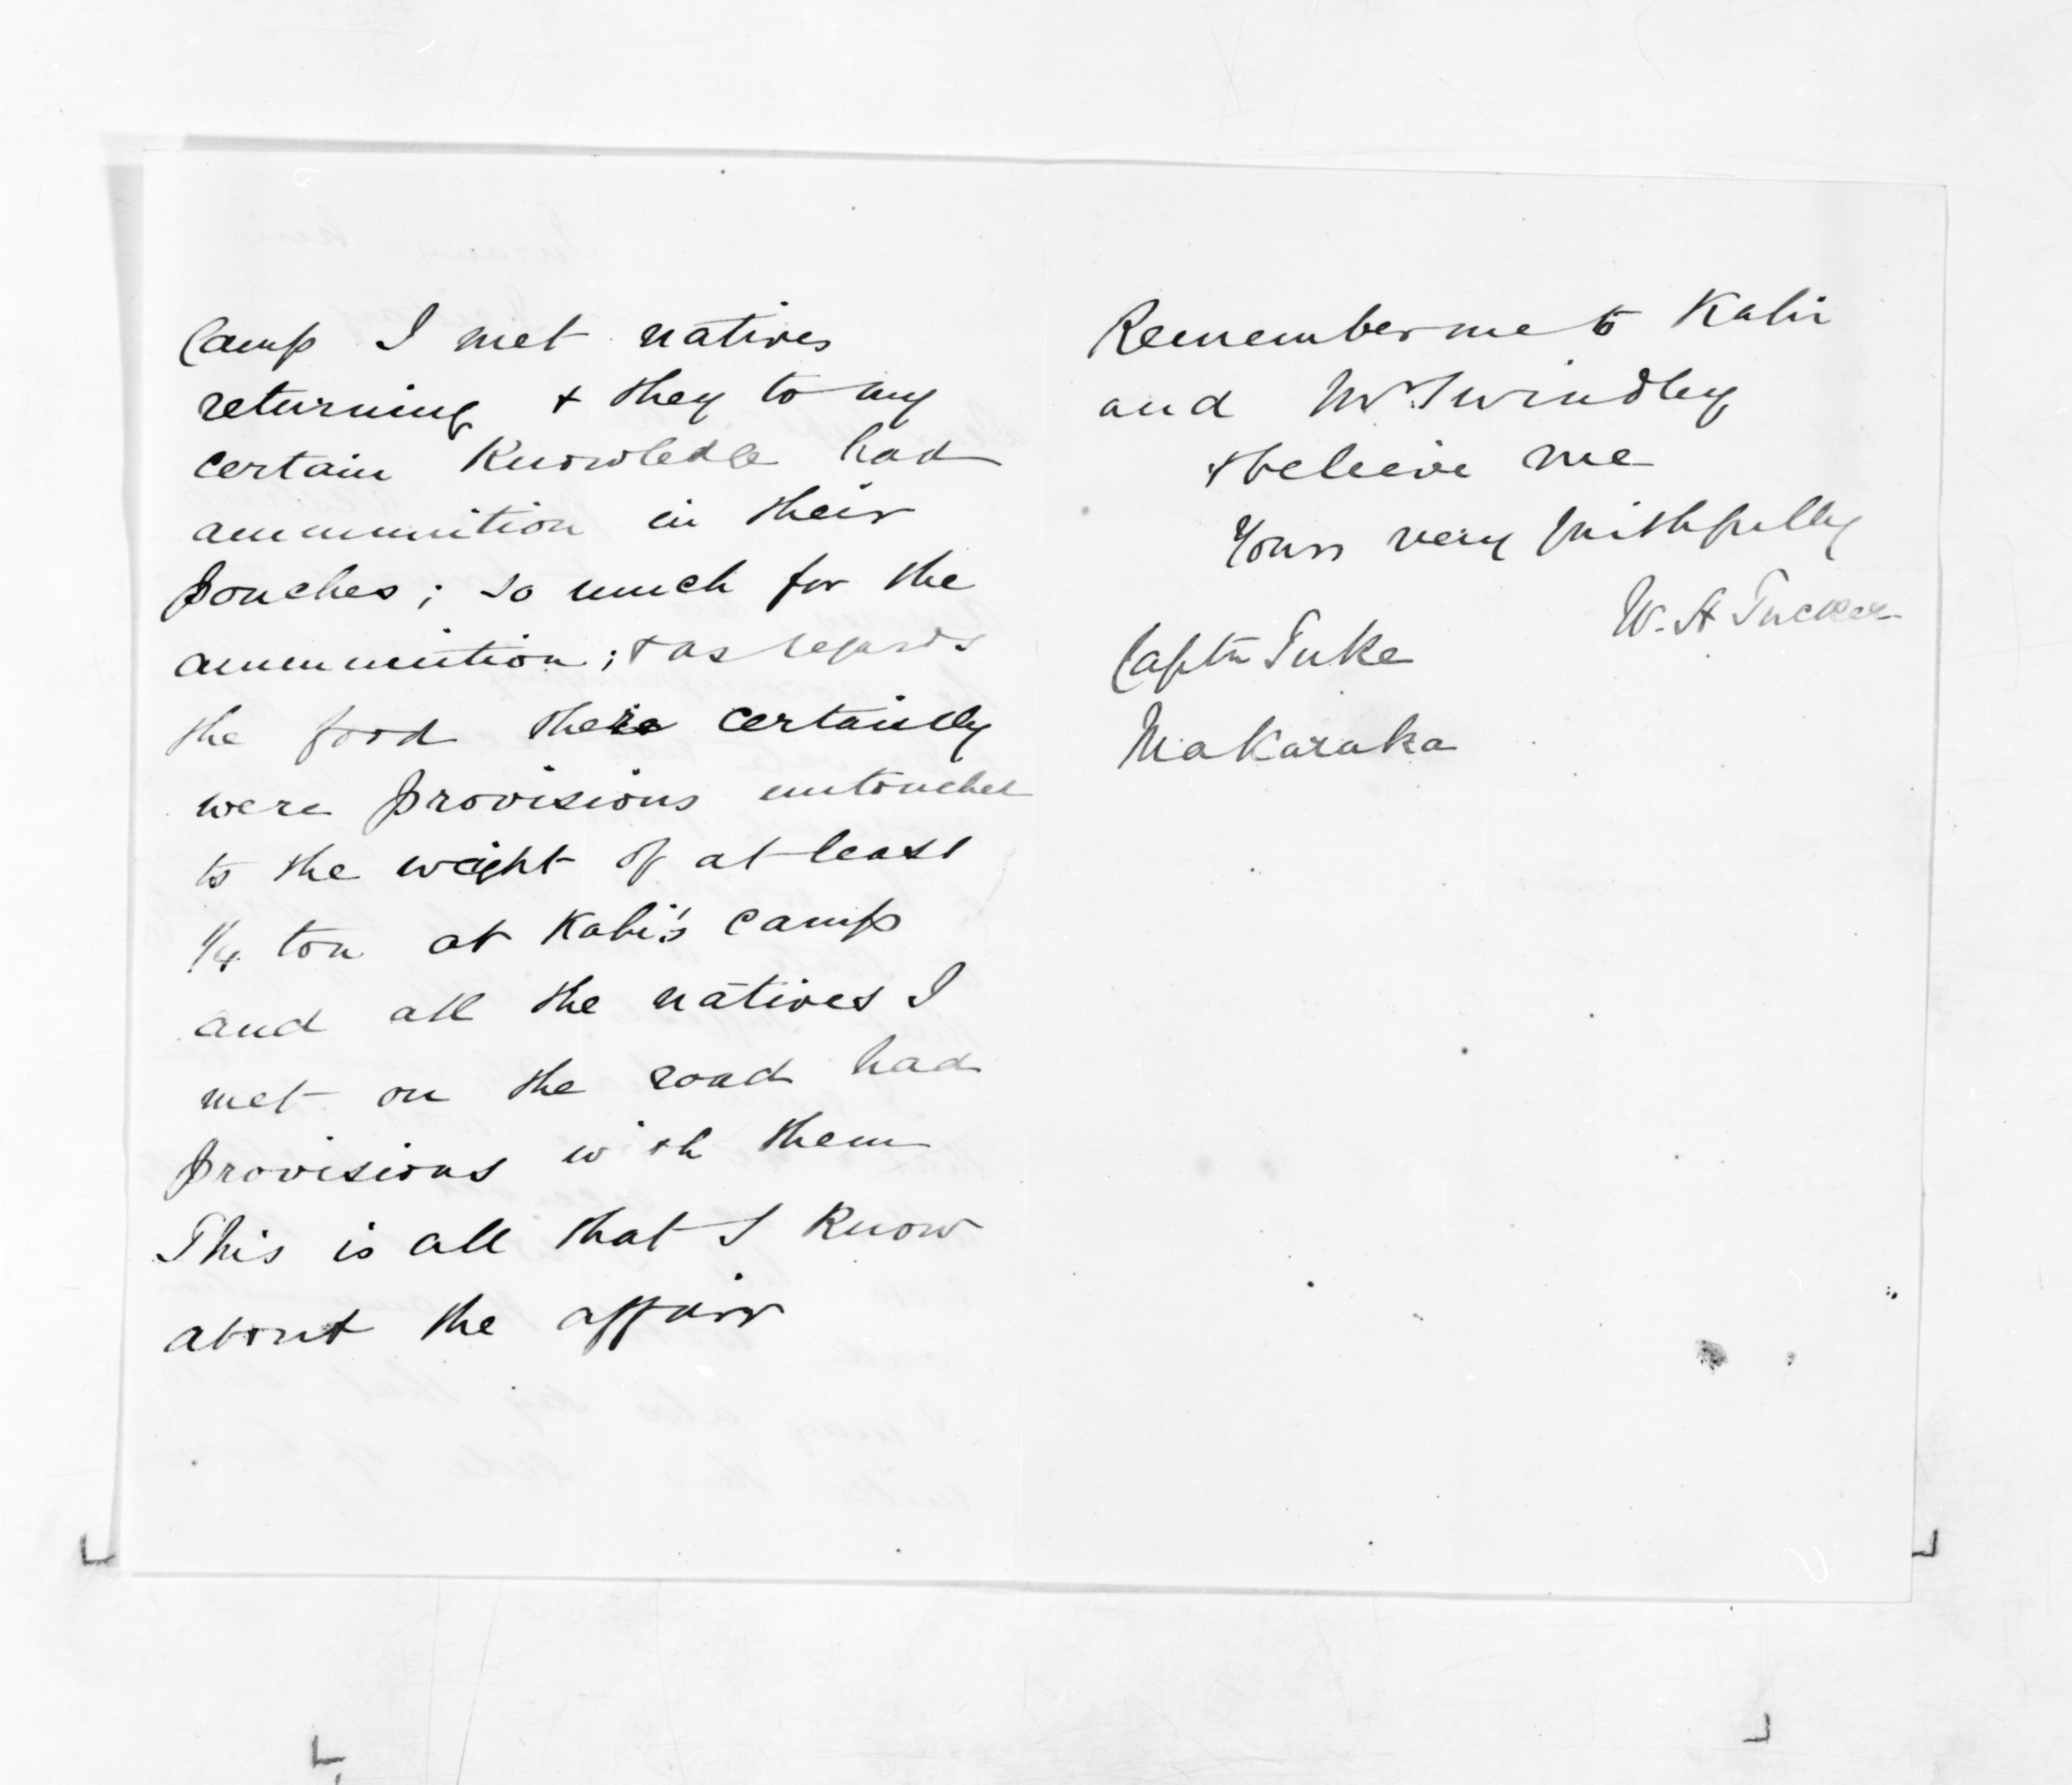 Camp I met natives
returning & they to my
certain Knowledge had
ammunition in their
pouches; so much for the
ammunition; & as regards
the food there certainly
were provisions untouched
to the weight of at least
1/4 ton at Kabi's camp
and all the natives I
met on the road had
provisions with them
This is all that I Know
about the affair
Remember me to Kabi
and Mr Twindley
& beleive me
Yours very faithfully
W. H Tucker
Captn Tuke
Makaraka